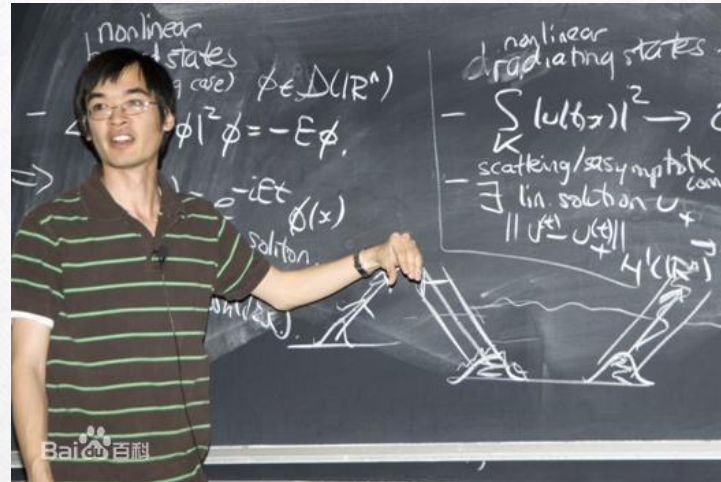 nonlinear
states
case) ϕ ∈ D(ℝⁿ)
ϕ|²ϕ = -Eϕ.
⇒ e^{-iEt} ϕ(x)
soliton.
nonlinear
radiating states
- ∫_K |u(t,x)|² →
- scattering/asymptotic
∃ lin. solution u₊
||u(t) - u₊(t)||_{H¹(ℝⁿ)} →
Baidu百科